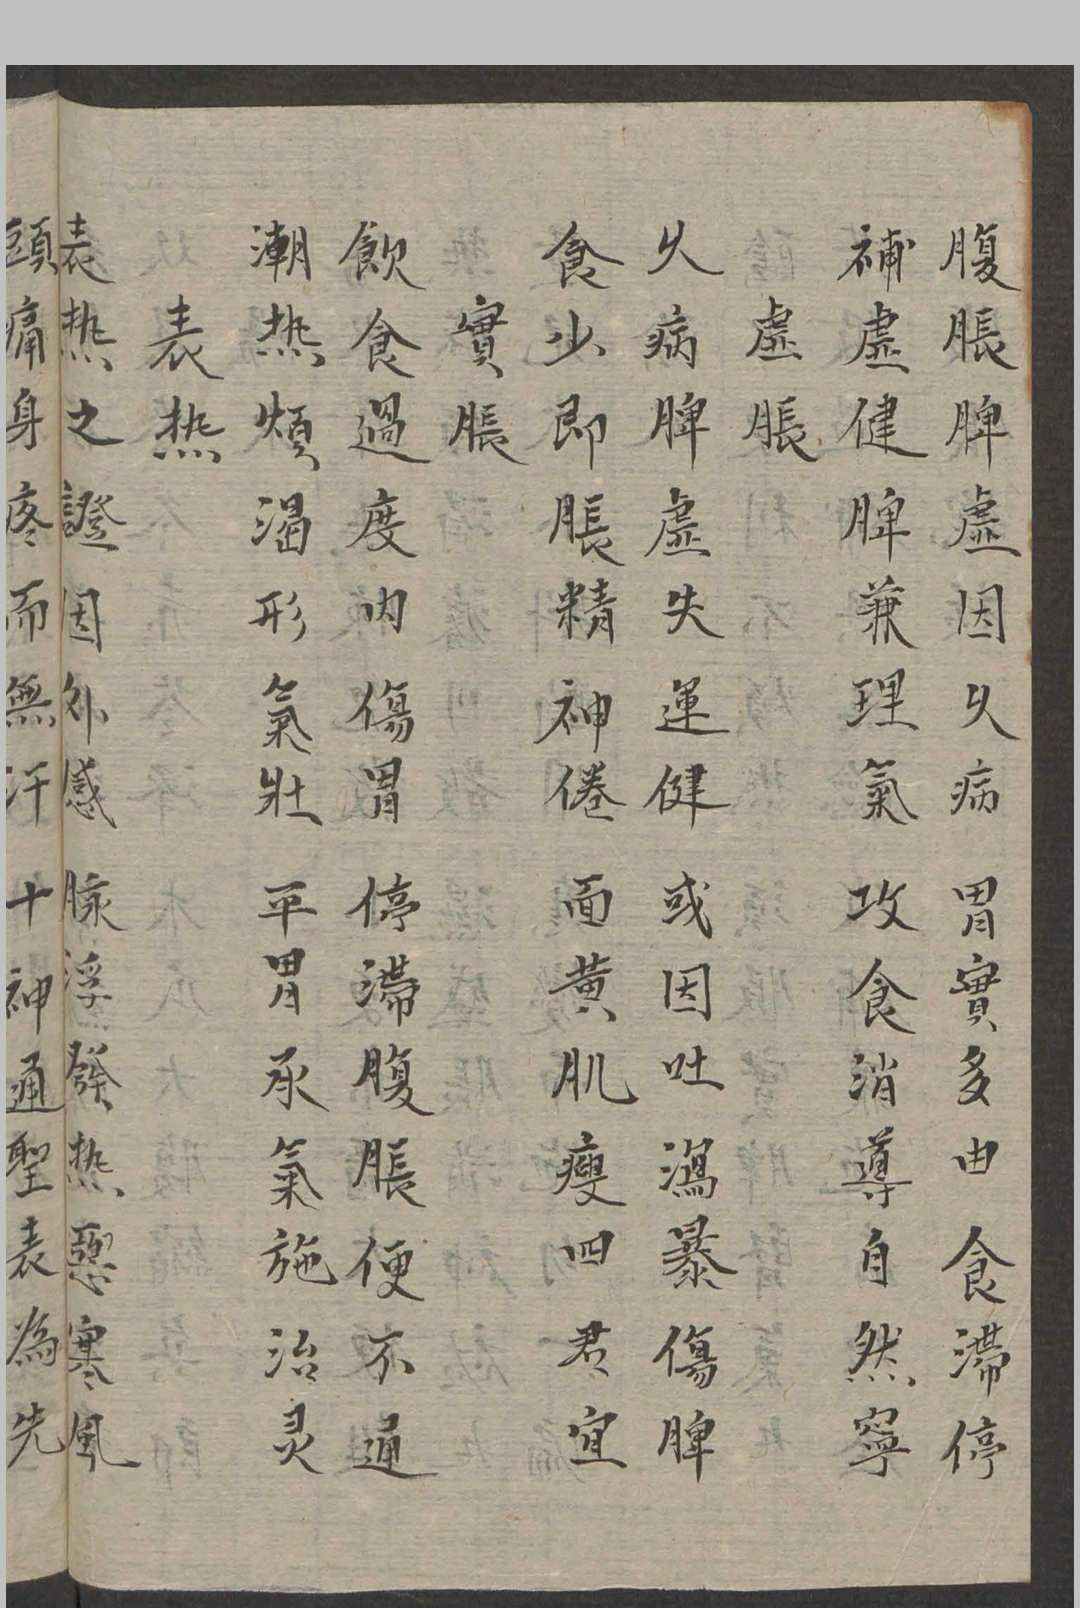 腹脹脾虛因久病胃實多由食滯停
補虛健脾兼理氣攻食消導自然寧
虛脹
久病脾虛失運健或因吐瀉暴傷脾
食少即脹精神倦面黃肌瘦四君宜
實脹
飲食過度內傷胃停滯腹脹便不通
潮热煩渴形氣壯平胃承氣施治灵
表热
表热之證因外感脉浮發热惡寒風
頭痛身疼而無汗十神通聖表為先